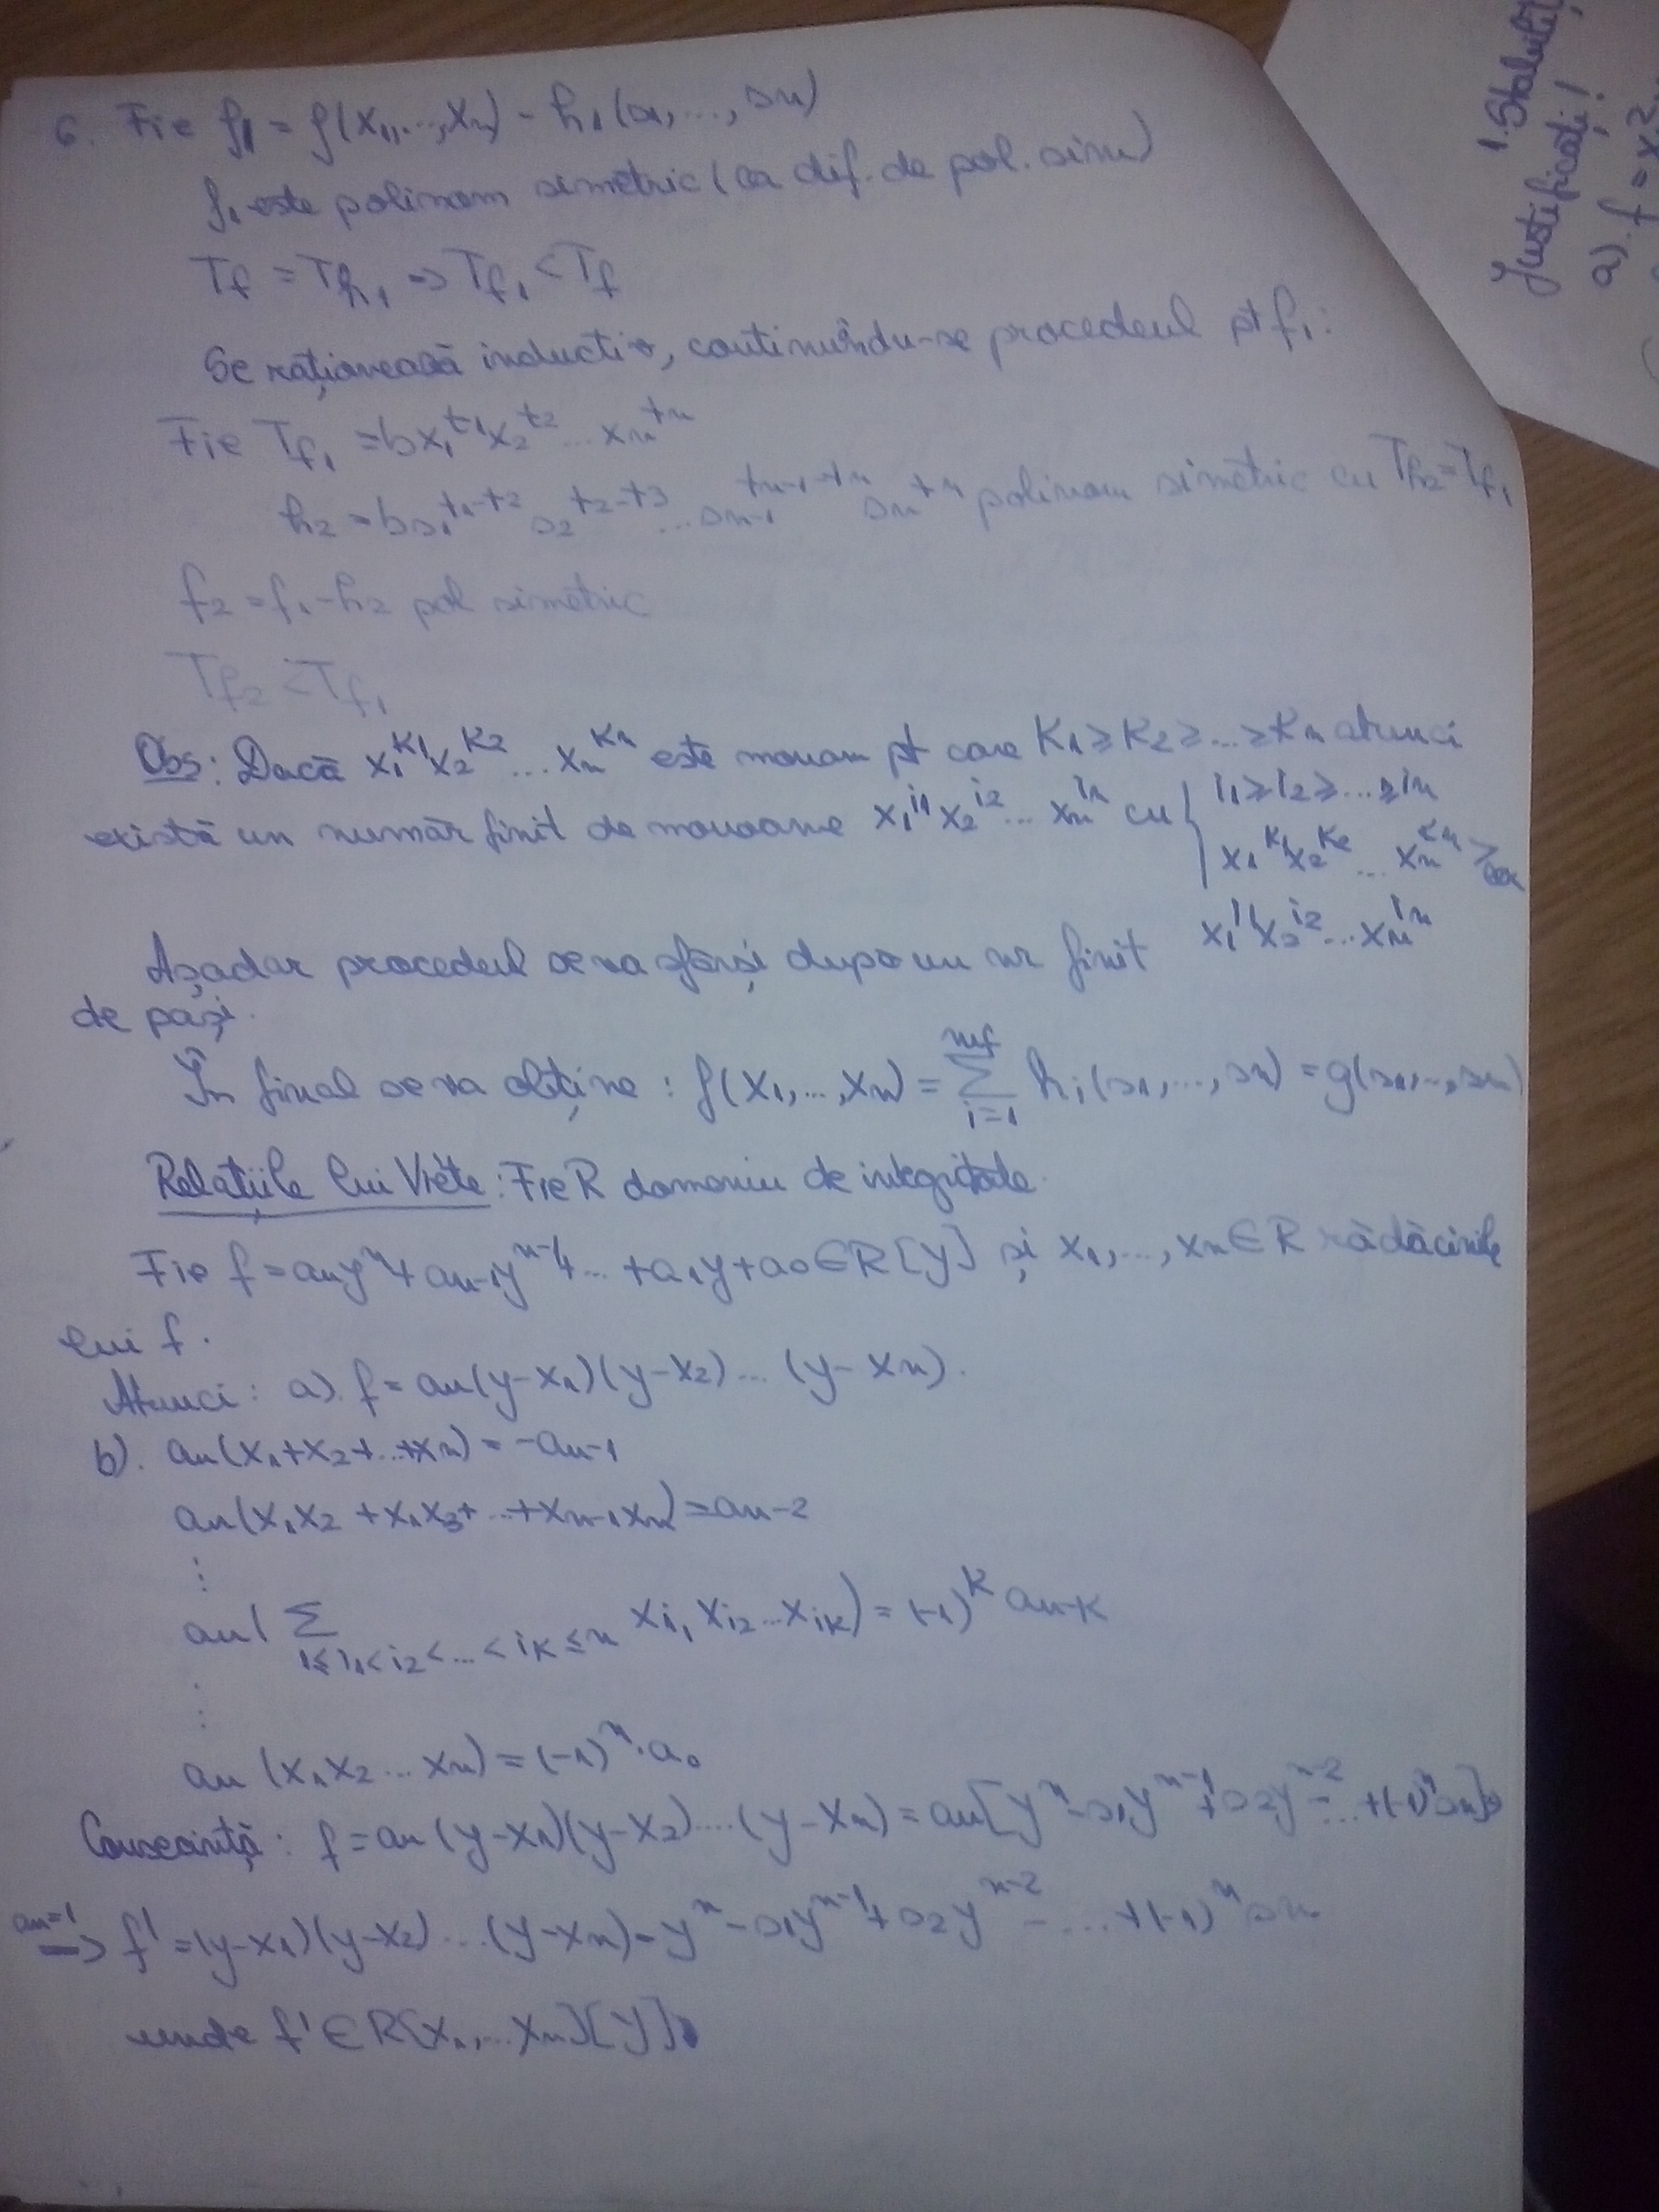 6. Fie f₁ = f(x₁,...,xn) - h₁(s₁,...,sn)
f₁ este polinom simetric (ca dif. de pol. sim)
Tf = Th₁ => Tf₁ < Tf
Se raționează inductiv, continuîndu-se procedeul pt f₁:
Fie Tf₁ = bx₁^t1 x₂^t2 ... xn^tn
h₂ = bs₁^t1-t2 s₂^t2-t3 ... sn-1^tn-1-tn sn^tn polinom simetric cu Th₂ = Tf₁
f₂ = f₁-h₂ pol simetric
Tf₂ < Tf₁
Obs: Dacă x₁^k1 x₂^k2 ... xn^kn este monom pt care k₁ ≥ k₂ ≥ ... ≥ kn atunci
există un număr finit de monoame x₁^i1 x₂^i2 ... xn^in cu { i₁ ≥ i₂ ≥ ... ≥ in
x₁^k1 x₂^k2 ... xn^kn ≥lex
x₁^i1 x₂^i2 ... xn^in
Așadar procedeul se va sfârși după un nr finit
de pași.
În final se va obține : f(x₁,...,xn) = Σ_{i=1}^{nf} hi(s₁,...,sn) = g(s₁,...,sn)
Relațiile lui Viète : Fie R domeniu de integritate.
Fie f = anyⁿ + an-1y^n-1 + ... + a₁y + a₀ ∈ R[y] și x₁,...,xn ∈ R rădăcinile
lui f.
Atunci : a). f = an(y-x₁)(y-x₂)...(y-xn).
b). an(x₁+x₂+...+xn) = -an-1
an(x₁x₂ + x₁x₃ + ... + xn-1xn) = an-2
⋮
an( Σ_{1≤i₁<i₂<...<ik≤n} xi₁ xi₂ ... xik) = (-1)^k an-k
⋮
an (x₁x₂...xn) = (-1)ⁿ·a₀
Consecință : f = an(y-x₁)(y-x₂)...(y-xn) = an[yⁿ-s₁y^n-1+s₂y^n-2-...+(-1)ⁿsn] =>
an=1 => f' = (y-x₁)(y-x₂)...(y-xn) = yⁿ-s₁y^n-1+s₂y^n-2-...+(-1)ⁿsn
unde f' ∈ R[x₁,...xn][y].
1. Stabiliți
Justificați!
a). f = x₁²